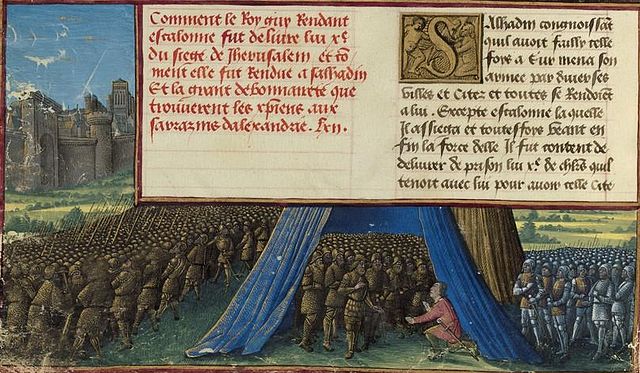 Comment le Roy guy Rendant
escalonne fut deliure lui xᵉ.
du siege de Jherusalem et cō
ment elle fut Rendue a salhadin
Et la grant debonnarete que
trouuerent les xpiens aux
sarrazins dalexandrie.
Salhadin congnoissāt
quil auoit failly
a Sur mena son
armee par diuerses
villes et Citez et toutes se Rendoiēt
a lui. Excepte escalonne la quelle
Il assiega et touteffoys Veant en
fin la force delle Il fut content de
deliurer de prison lui xᵉ. de quil
tenoit auec lui pour auoir celle Cite